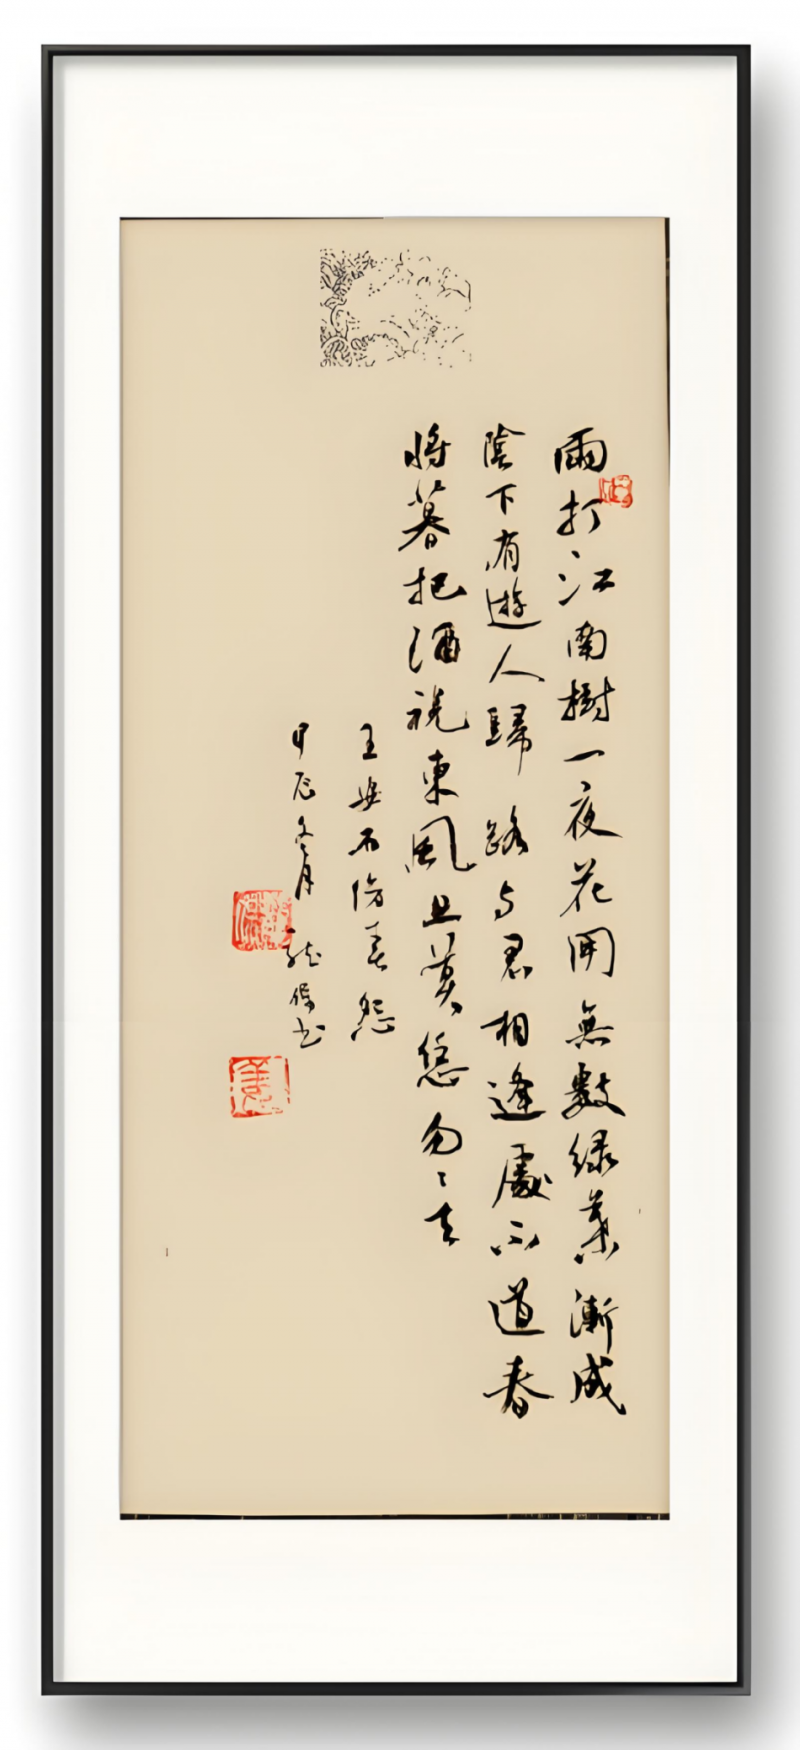 雨打江南樹一夜花開無數緑葉漸成
陰下有遊人歸路与君相逢處不道春
將暮把酒祝東風且莫恁匆〻去
王安石傷春怨
甲辰冬月 龍保书